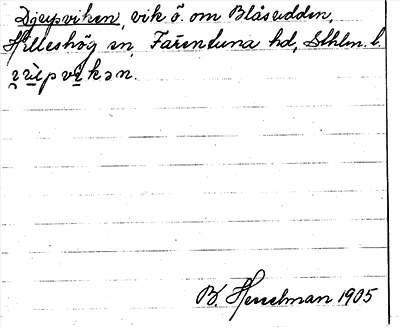 Djupviken, vik ö. om Blåsudden,
Hilleshög sn, Färentuna hd, Sthlm. l.
B. Hesselman 1905